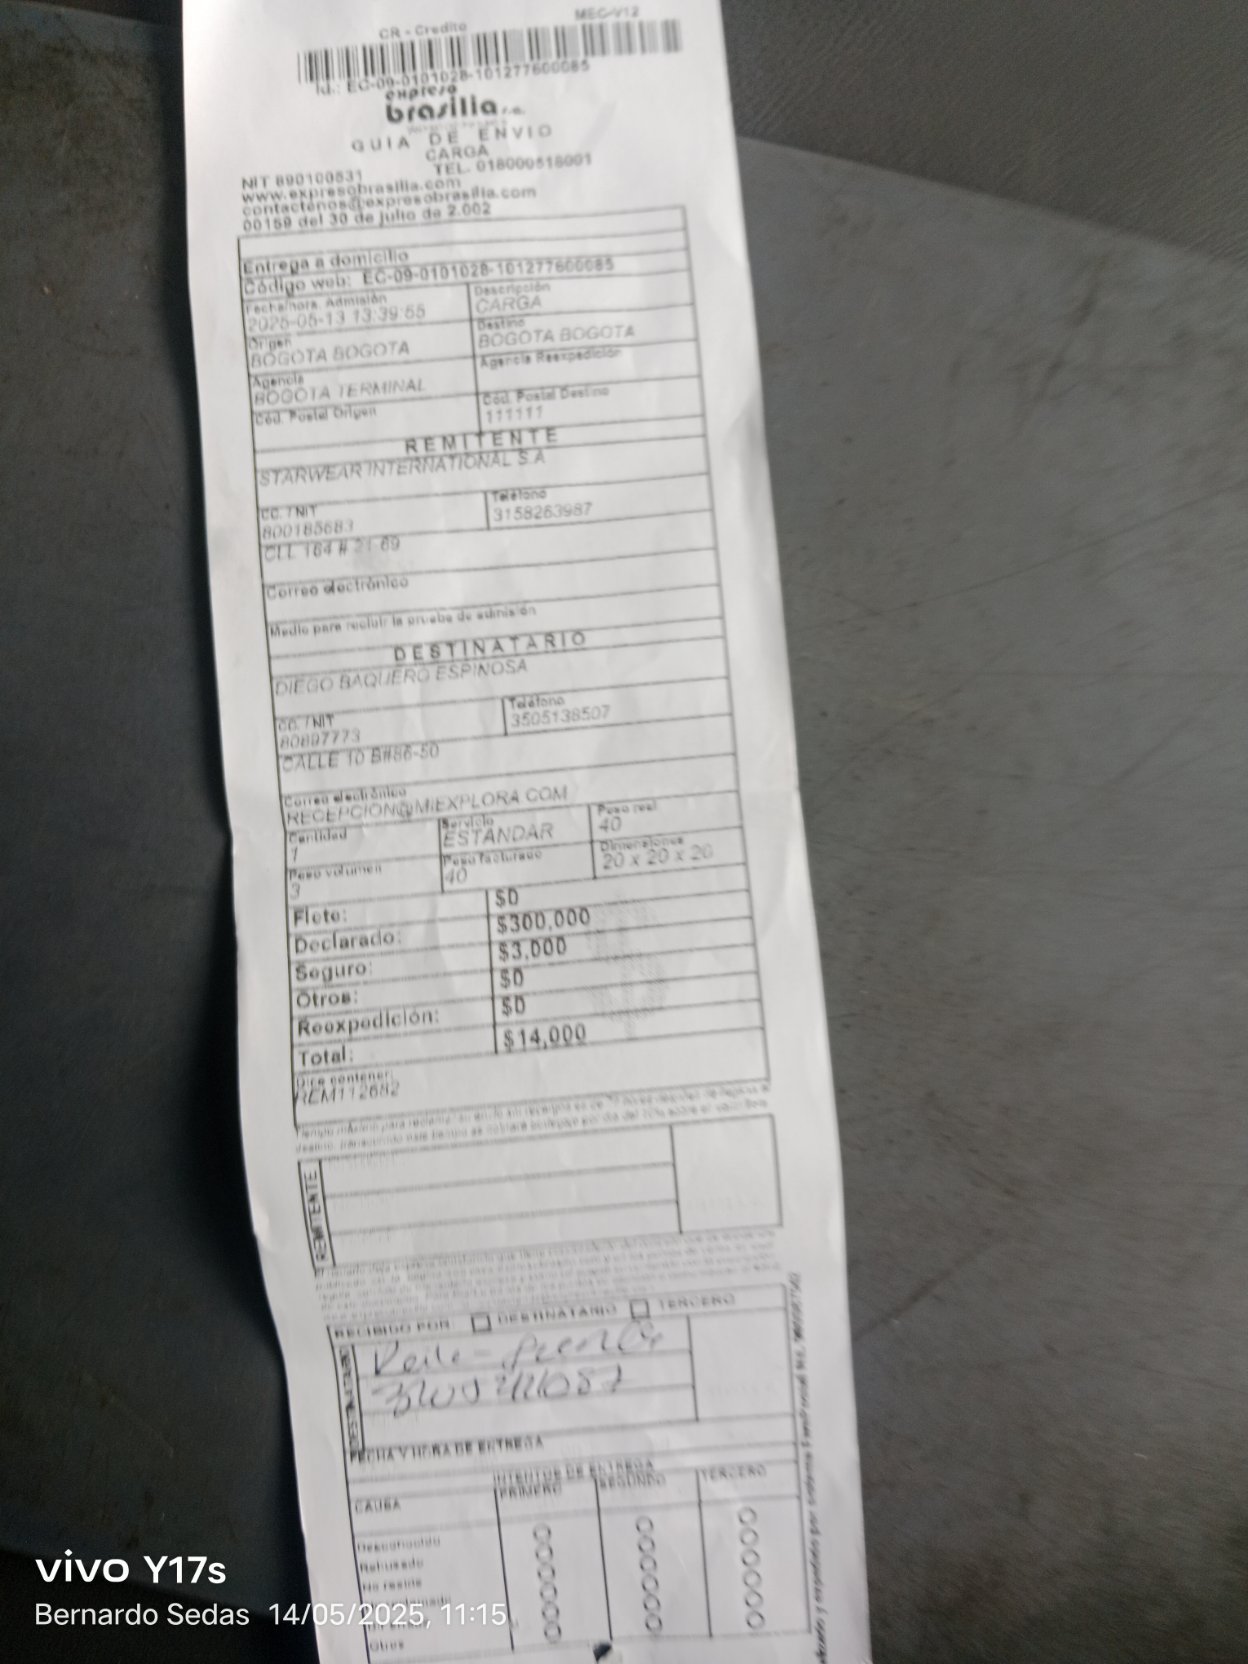 CR - Credito
MEC-V12
Id.: EC-09-0101028-101277600085
expreso
brasilia s.a.
GUIA DE ENVIO
CARGA
NIT 890100531
TEL. 018000518001
www.expresobrasilia.com
contactenos@expresobrasilia.com
00159 del 30 de julio de 2.002
Entrega a domicilio
Código web: EC-09-0101028-101277600085
Fecha/hora. Admisión
2025-05-13 13:39:55
Descripción
CARGA
Origen
BOGOTA BOGOTA
Destino
BOGOTA BOGOTA
Agencia
BOGOTA TERMINAL
Agencia Reexpedición
Cód. Postal Origen
Cód. Postal Destino
111111
REMITENTE
STARWEAR INTERNATIONAL S.A
CC. / NIT
800185683
Teléfono
3158263987
CLL 164 # 21 69
Correo electrónico
Medio para recluir la prueba de admisión
DESTINATARIO
DIEGO BAQUERO ESPINOSA
CC. / NIT
80897773
Teléfono
3505138507
CALLE 10 B#86-50
Correo electrónico
RECEPCION@MIEXPLORA.COM
Cantidad
1
Servicio
ESTANDAR
Peso real
40
Peso volumen
3
Peso facturado
40
Dimensiones
20 x 20 x 20
Flete: $0
Declarado: $300,000
Seguro: $3,000
Otros: $0
Reexpedición: $0
Total: $14,000
Dice contener:
REM112682
REMITENTE
RECIBIDO POR: DESTINATARIO TERCERO
DESTINATARIO
FECHA Y HORA DE ENTREGA
INTENTOS DE ENTREGA
CAUSA PRIMERO SEGUNDO TERCERO
Desconocido
Rehusado
No reside
Otros
vivo Y17s
Bernardo Sedas 14/05/2025, 11:15